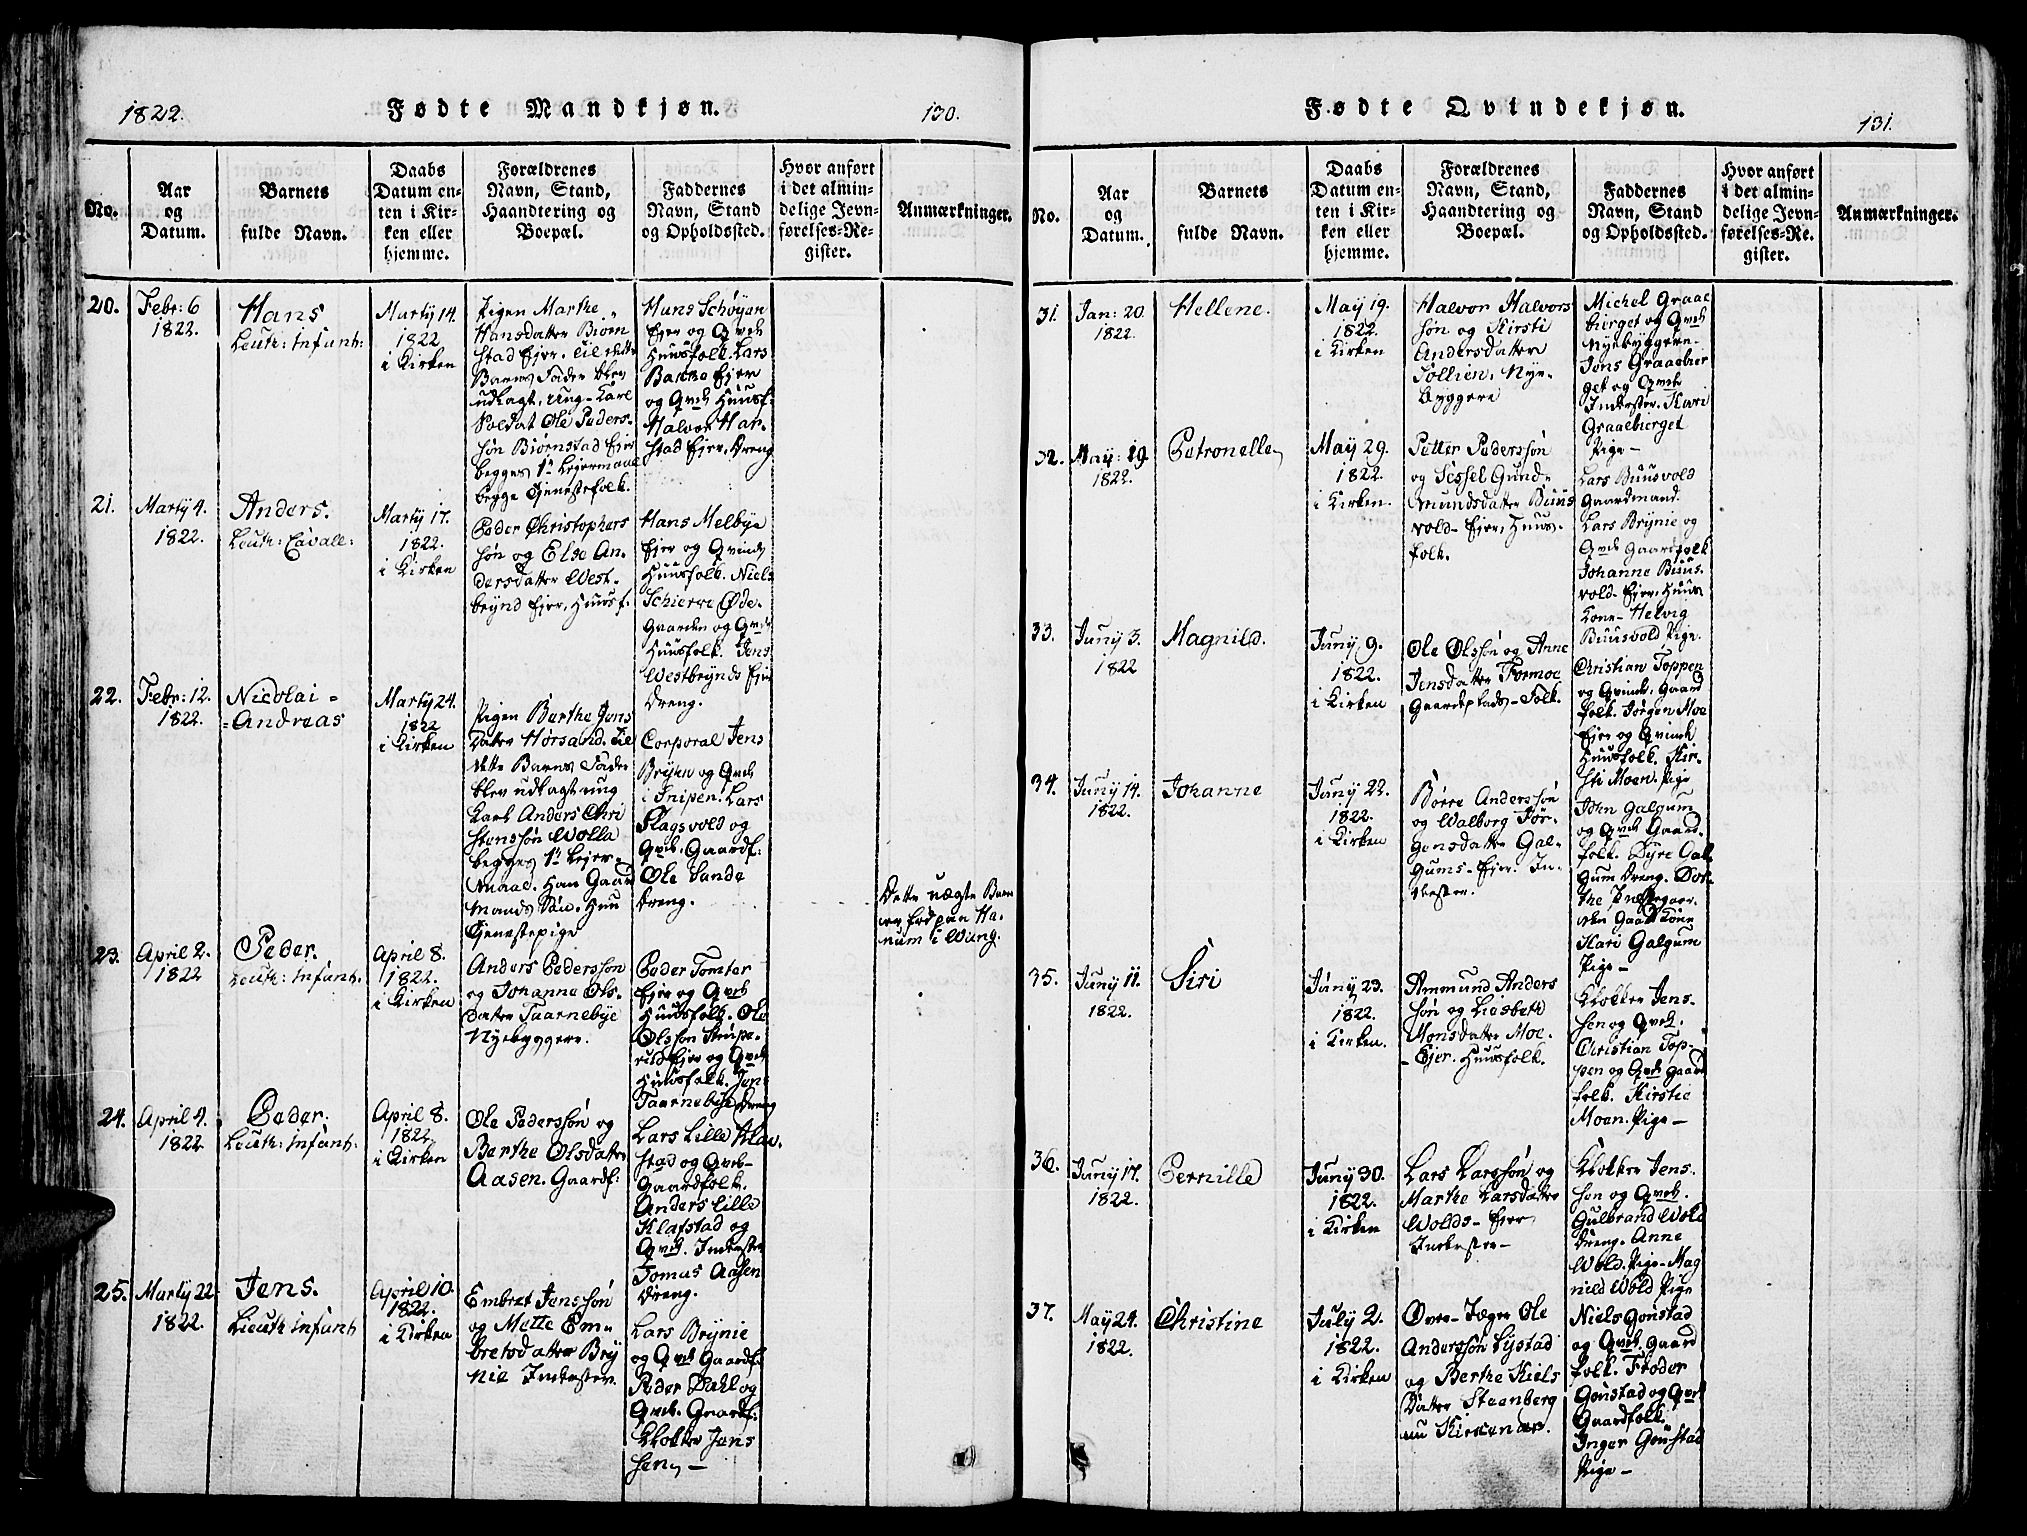 1822.
Fødte Mandkjøn.
130.
No.
Aar
og
Datum.
Barnets
fulde Navn.
Daabs
Datum en-
ten i Kir-
ken eller
hjemme.
Forældrenes
Navn, Stand,
Haandtering og
Boepæl.
Faddernes
Navn, Stand
og Opholdssted.
Hvor anført
i det almin-
delige Jevn-
førelses-Re-
gister.
Anmærkninger.
20.
Febr: 6
1822.
Hans
Leuth: Infant:
Marty 14.
1822
i Kirken
Pigen Marthe
Hansdatter Biørn
stad Ejer. Til dette
Barns Fader blev
udlagt, ung-Karl
Soldat Ole Peders-
søn Biørnstad Ejer
begges 1te Lejermaal
begge Tjenestefolk.
Hans Schøyen
Ejer og Qvinde
Huusfolk. Lars
Bakke Ejer
og Qvinde Huusf.
Halvor Har-
stad Ejer, Dreng
21.
Marty 4.
1822.
Anders.
Leuth: Cavall:
Marty 17.
1822.
i Kirken
Peder Christophers
søn og Else An-
dersdatter West-
brynd Ejer, Huusf.
Hans Melbye
Ejer og Qvinde
Huusfolk. Niels
Schierre Øde-
Gaarden og Qvinde
Huusfolk. Jens
Westbrynds Ejer
Dreng.
22.
Febr: 12.
1822.
Nicolai =
= Andreas
Marty 24.
1822
i Kirken
Pigen Berthe Jens
Datter Hørsand. Til
dette Barns Fader
blev udlagt ung
Karl Anders Chri
stenssøn Wolla
begges 1te Lejer-
maal. Han Gaard
mands Søn. Hun
Tjenestepige
Corporal Jens
Brynn og Qvinde
i Snipen. Lars
Slagsvold og
Qvinde. Gaardf:
Ole Sande
Dreng.
Dette uægte Barn
er fød paa Ha-
num i Wang.
23.
April 2.
1822
Peder.
Leuth: Infant.
April 8.
1822.
i Kirken
Anders Pederssøn
og Johanne Ols-
datter Taarnebye
Nyebyggere.
Peder Tomter
Ejer og Qvinde
Huusfolk. Ole
Olssøn Strupe-
rud Ejer og Qvinde
Huusfolk. Jens
Taarnebye Dreng
24.
April 4.
1822
Peder.
Leuth: Infant:
April 8.
1822.
i Kirken
Ole Pederssøn og
Berthe Olsdatter
Aasen. Gaardf:
Lars Lille Klav-
stad og Qvinde-
Gaardfolk.
Anders Lille
Klafstad og
Qvinde. Inderster
Tomas Aasen
Dreng.
25.
Marty 22.
1822.
Jens.
Lieuth Infant
April 10.
1822.
i Kirken
Embret Jenssøn
og Mette Em-
bretsdatter Bry
nie Inderster.
Lars Brynie
og Qvinde Gaardf.
Peder Dahl og
Qvinde. Gaardf:
Klokker Jens
sen, —
Fødte Qvindekjøn.
131.
No.
Aar
og
Datum.
Barnets
fulde Navn.
Daabs
Datum en-
ten i Kir-
ken eller
hjemme.
Forældrenes
Navn, Stand,
Haandtering og
Boepæl.
Faddernes
Navn, Stand
og Opholdssted.
Hvor anført
i det almin-
delige Jevn-
førelses-Re-
gister.
Anmærkninger.
31.
Jan: 20.
1822.
Hellene.
May 19.
1822.
i Kirken
Halvor Halvors
søn og Kirsti
Andersdatter
Sollien, Nye-
byggere
Michel Graae
bierget og Qvinde
Nyebyggere-
Jens Graaebier
get og Qvinde
Inderster. Kari
Graaebierget
Pige —
32.
May: 19.
1822.
Petronelle,
May 29.
1822.
i Kirken.
Petter Pederssøn
og Sessel Gund-
mundsdatter Buus
vold- Ejer, Huus-
folk.
Lars Buusvold
Gaardmand.
Lars Brynie og
Qvinde Gaardfolk
Johanne Buus-
vold- Ejer, Huus
Kone- Helvig
Buusvold Pige.
33.
Juny 3.
1822
Magnild.
Juny 9.
1822.
i Kirken
Ole Olssøn og Anne
Jensdatter Formoe
Gaardeplads-Folk.
Christian Toppen
og Qvinde, Gaard
folk. Jørgen Moe
Ejer og Qvinde
Huusfolk. Kir-
sti Moen. Pige
34.
Juny 14.
1822.
Johanne
Juny 22.
1822.
i Kirken
Børre Anderssøn
og Walborg Jør-
gensdatter Gal-
gums- Ejer. In-
derster.
John Galgum
og Qvinde Gaard-
folk. Dyre Gal
gum Dreng. Dor-
the Prestegaar-
den Gaard Kone
Kari Galgum
Pige —
35.
Juny 11.
1822.
Siri
Juny 23.
1822.
i Kirken.
Ammund Anders
søn og Liesbeth
Monsdatter Moe-
- Ejer. Huusfolk.
Klokker Jens-
sen og Qvinde.
Christian Top-
pen og Qvinde Gaard
folk. Kirstie
Moen. Pige —
36.
Juny 17.
1822.
Pernille
Juny 30.
1822.
i Kirken
Lars Larssøn og
Marthe Larsdatter
Wolds- Ejer
Inderster —
Klokker Jens-
sen og Qvinde.
Gulbrand Wold
Dreng. Anne
Wold. Pige- Mag
nild Wold Pige
37.
May 24.
1822.
Christine
July 2.
1822.
i Kirken
Over-Jæger Ole
Anderssøn Lystad
og Berthe Niels
Datter Steenberg
Niels Gonstad
og Qvinde. Gaard
folk. Floder
Gonstad og Qvinde
Gaardfolk.
Inger Gonstad
Pige —